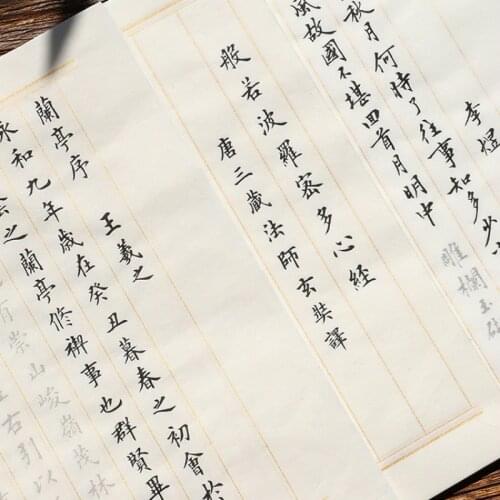 李煜
秋月何時了往事知多少
風故國不堪回首月明中雕欄玉砌
般若波羅密多心經
唐三藏法師玄奘譯
蘭亭序
王羲之
永和九年歲在癸丑暮春之初會於
之蘭亭修禊事也群賢畢
有崇山峻嶺茂林
右引以